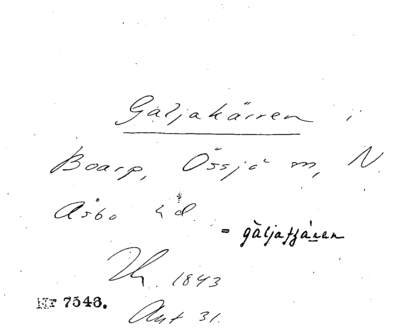 Galjakärren i
Boarp, Össjö sn, N
Åsbo hd.
= gäljatjären
1843
Nr 7543.
Akt 31.